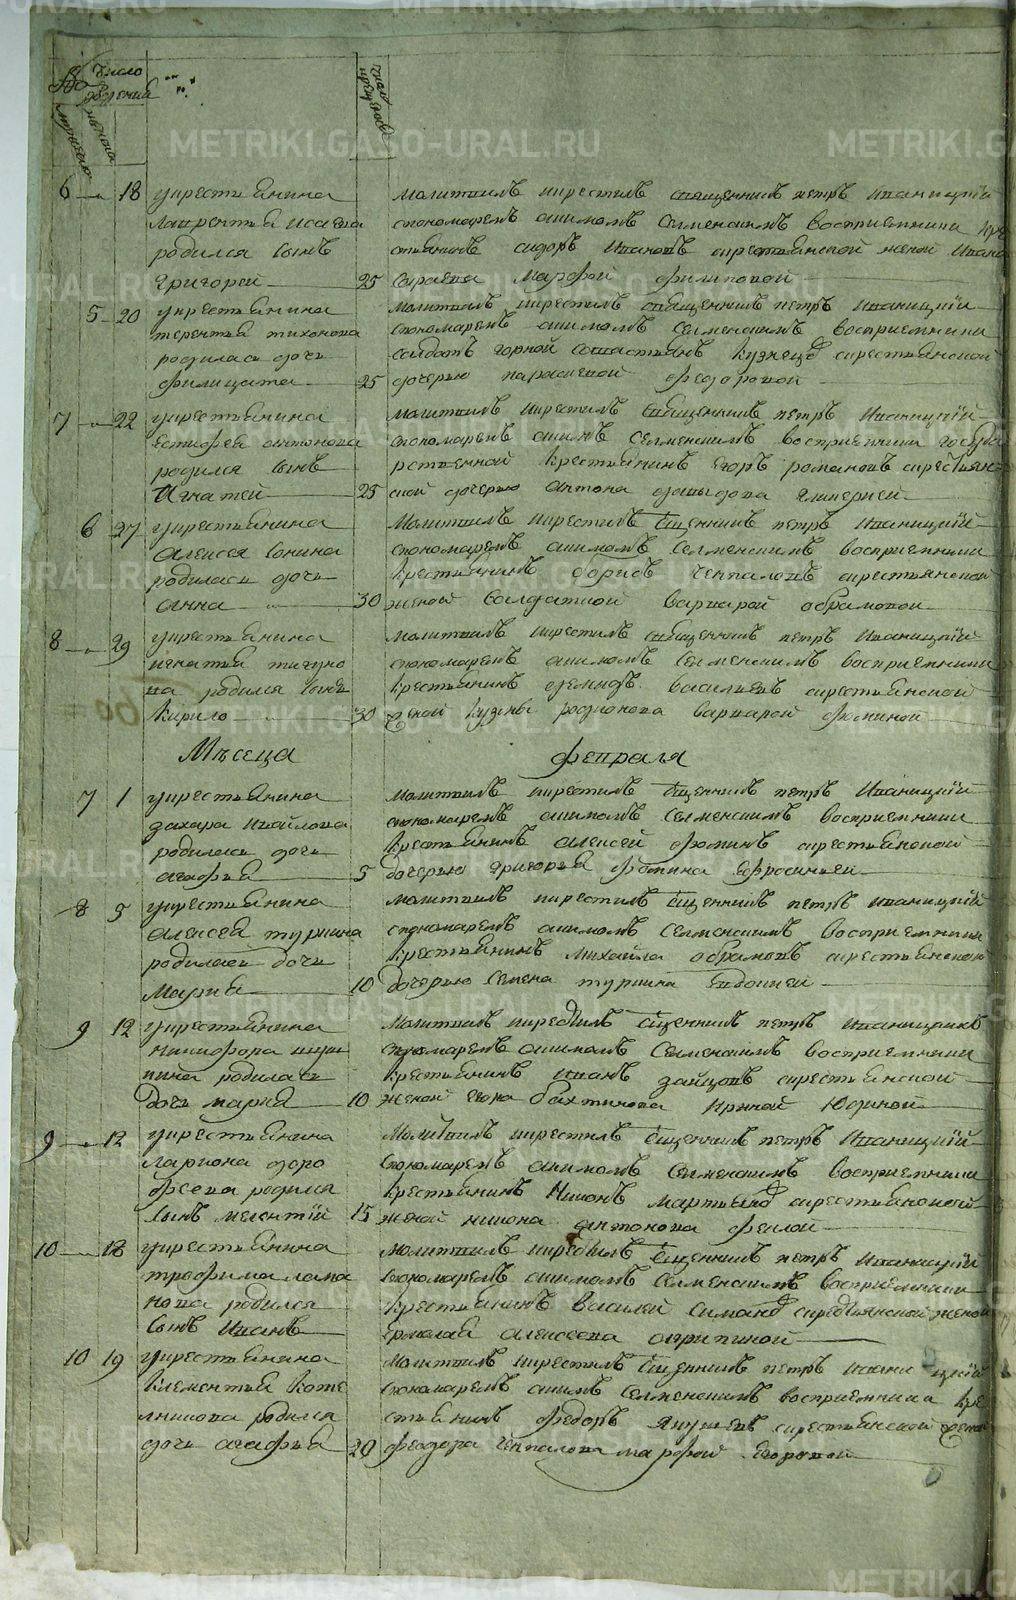 METRIKI.GASO-URAL.RU
Число
рождения
мужеска
женска
число
крещения
6 18 у крестьянина
Лаврентья Исаева
родился сынъ
Григорей 25
молитвилъ и крестилъ священникъ петръ Иваницкїй
с пономаремъ акимомъ Селменскимъ восприемники кре
стьянинъ сидоръ Ивановъ с крестьянской женой Ивана
Сараева Марфой филиповой
5 20 у крестьянина
терентья тихонова
родилась дочь
филицата 25
молитвилъ и крестилъ священникъ петръ Иваницкїй
с пономаремъ акимомъ Селменскимъ восприемники
солдатъ горной Савастьянъ Кузнецо с крестьянской
дочерью параскевой федоровой
7 22 у крестьянина
Естифея антонова
родился сынъ
Игнатей 25
молитвилъ и крестилъ священникъ петръ Иваницкїй
с пономаремъ акимъ Селменскимъ восприемники государ
рственной крестьянинъ Егоръ романовъ с крестьян
ской дочерью Антона давыдова гликерией
6 27 у крестьянина
Алексея Сонина
родилась дочь
анна 30
Молитвилъ и крестилъ Сщенникъ петръ Иваницкїй
с пономаремъ акимомъ Селменскимъ восприемники
Крестьянинъ борисъ Чепаловъ с крестьянской
женой Солдаткой варварой абрамовой
8 29 у крестьянина
игнатья тигуно
ва родился сынъ
Кирило 30
молитвилъ и крестилъ священникъ петръ Иваницкїй
с пономаремъ акимомъ Селменскимъ восприемники
Крестьянинъ демидъ Василиевъ с крестьянской
женой кузмы родионова варварой фоминой
Мѣсеца февраля
7 1 у крестьянина
захара Михайлова
родилась дочь
агафья 5
молитвилъ и крестилъ Сщенникъ петръ Иваницкїй
с пономаремъ акимомъ Селменскимъ восприемники
Крестьянинъ алексей фоминъ с крестьянской
дочерью григорья фомина Ефросиньей
8 5 у крестьянина
алексея туркина
родилась дочь
Марья 10
молитвилъ и крестилъ Сщенникъ петръ Иваницкїй
с пономаремъ акимомъ Селменскимъ восприемники
Крестьянинъ Михайла абрамовъ с крестьянской
дочерью Семена туркина Евдокией
9 12 у крестьянина
никифора
кина родилась
дочь мария 10
молитвилъ и крестилъ Сщенникъ петръ Иваницкїй
с пономаремъ акимомъ Селменскимъ восприемники
Крестьянинъ Иванъ зайцовъ с крестьянской
женой егора бахтинова Ириной Юдиной
9 12 у крестьянина
лариона доро
феева родился
Сынъ мелентїй 15
Молитвилъ и крестилъ Сщенникъ петръ Иваницкїй
с пономаремъ акимомъ Селменскимъ восприемники
Крестьянинъ Никонъ Мартья с крестьянской
женой никона антонова феклой
10 18 у крестьянина
трофима лама
нова родился
Сынъ Иванъ
молитвилъ и крестилъ Сщенникъ петръ Иваницкїй
с пономаремъ акимомъ Селменскимъ восприемники
Крестьянинъ Василей с крестьянской женой
Ермолая алексеева агрипиной
10 19 у крестьянина
Клементья Коте
лникова родился
дочь агафья 20
молитвилъ и крестилъ Сщенникъ петръ Иваницкїй
с пономаремъ акимъ Селменскимъ восприемники кре
стьянинъ федоръ Якушевъ с крестьянской женой
феодора Чепалова марфой Егоровой